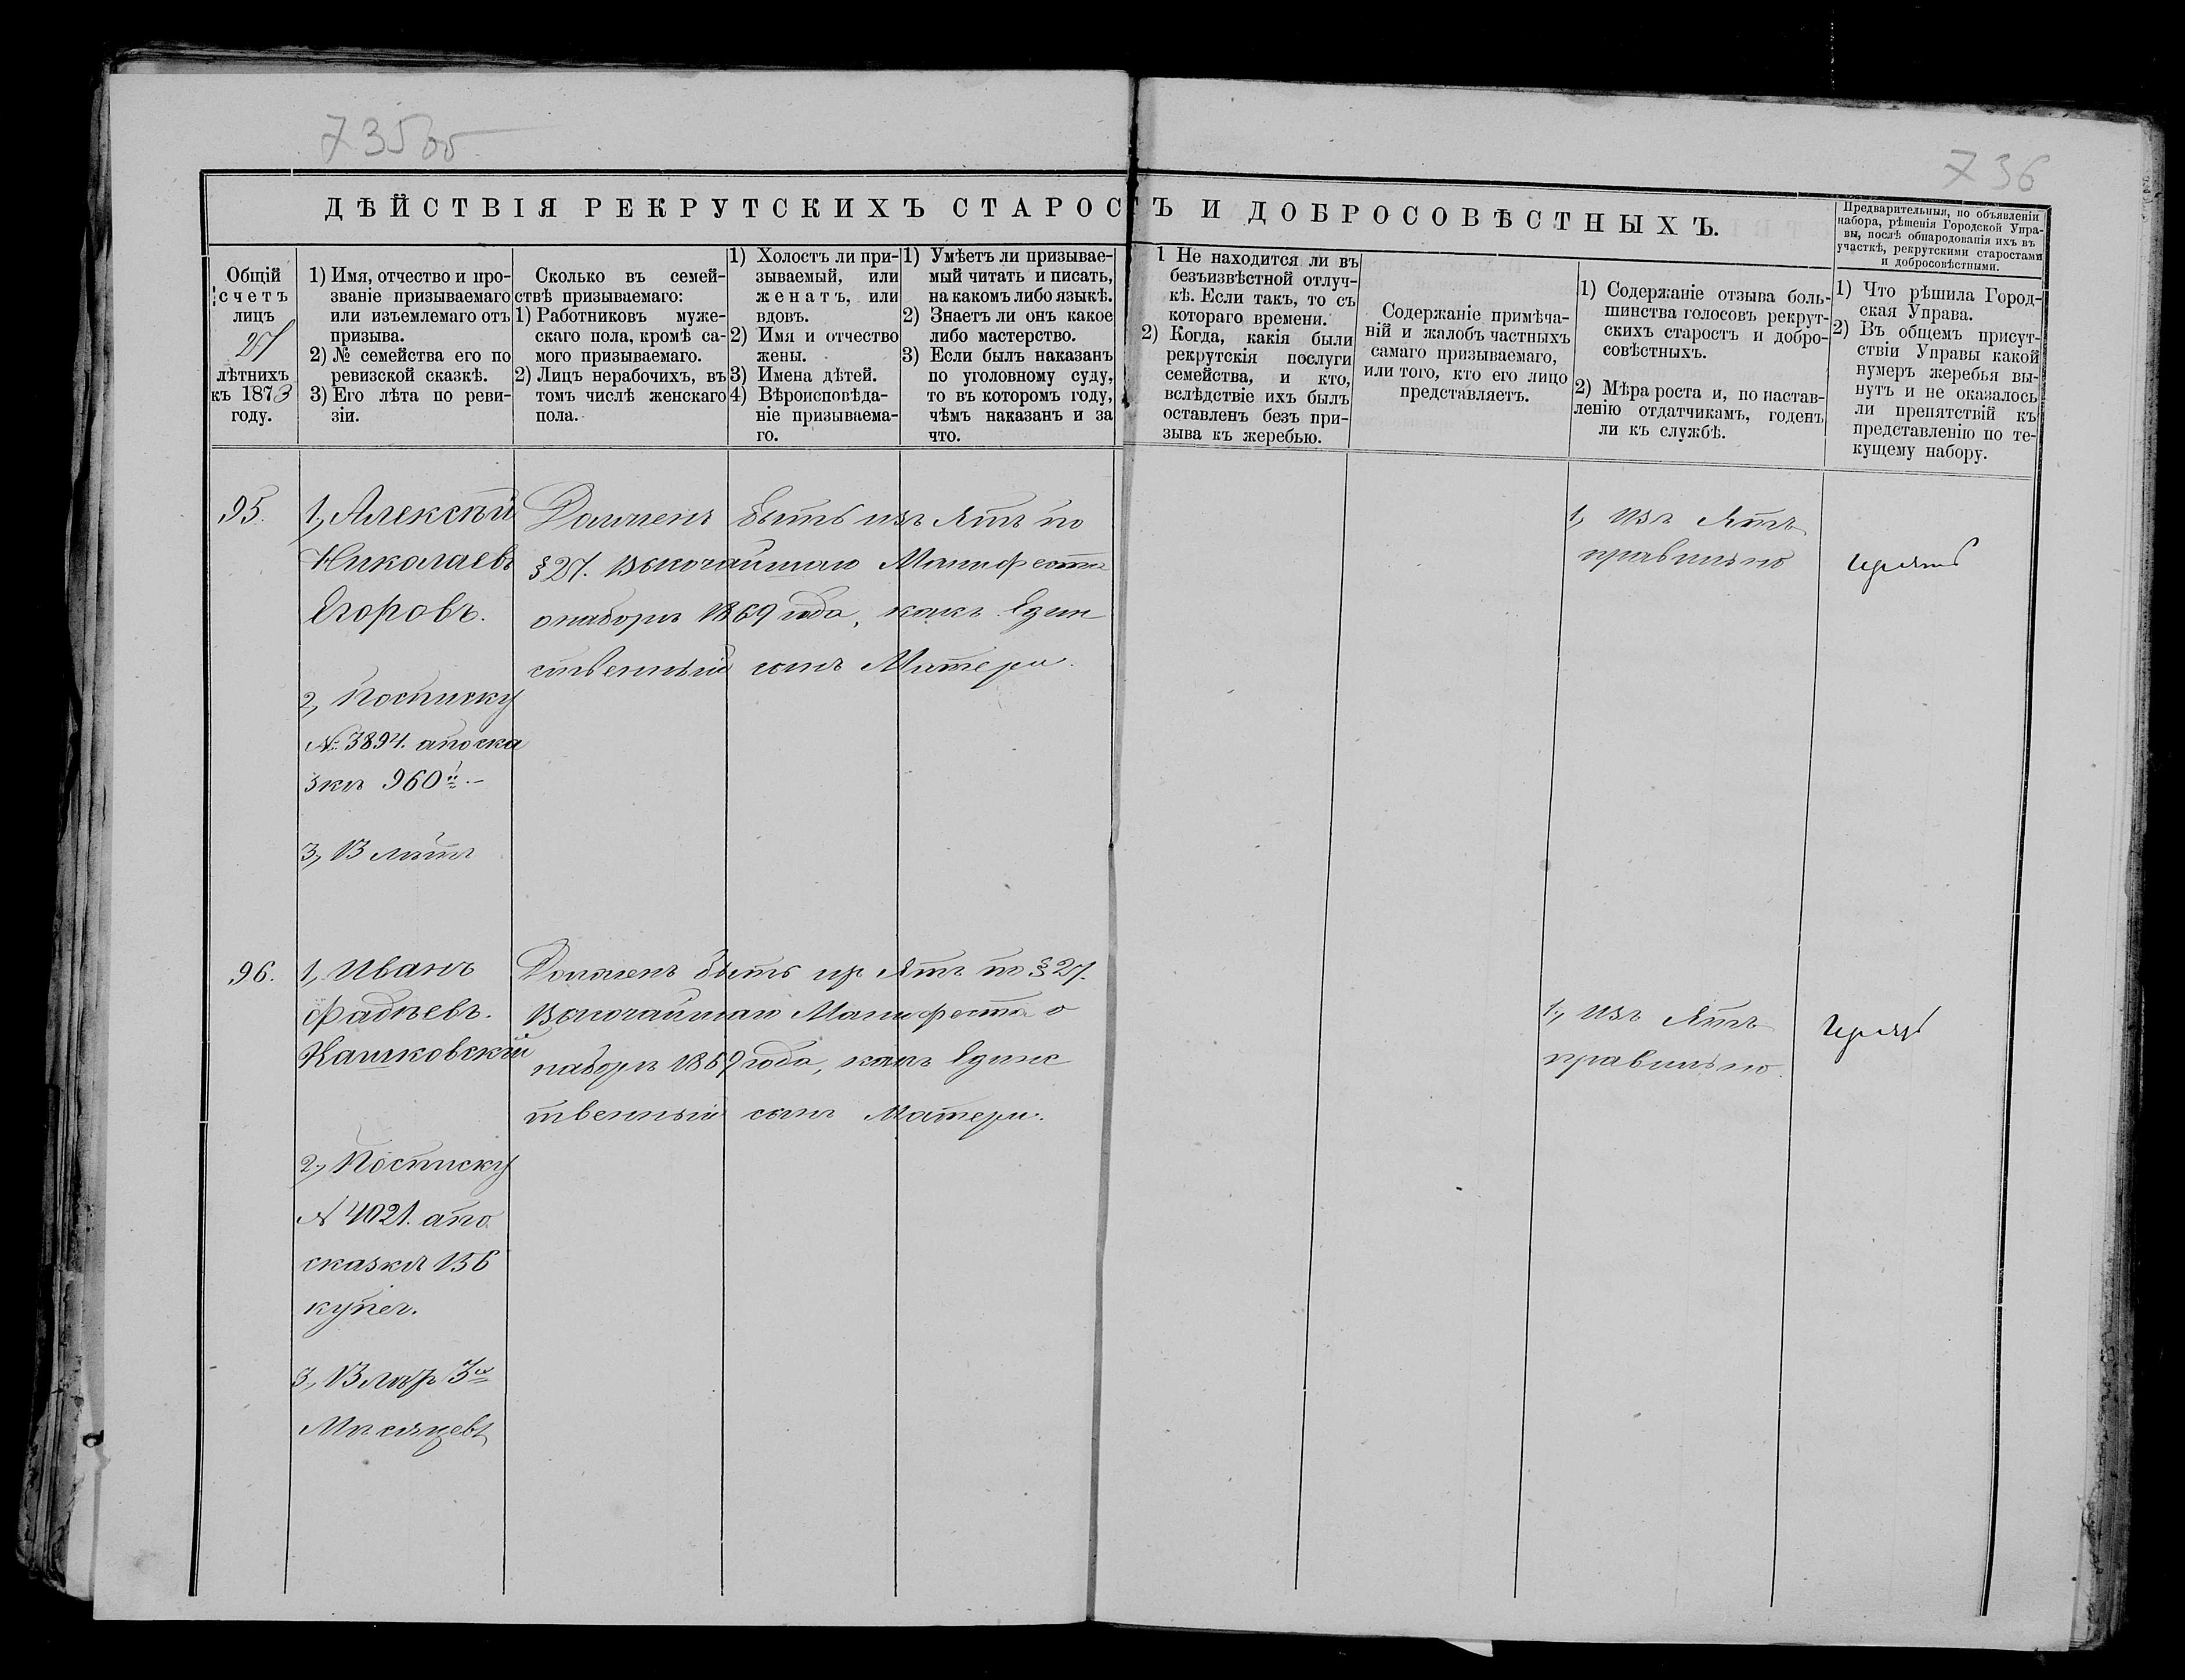 735 об
736
ДѢЙСТВІЯ РЕКРУТСКИХЪ СТАРОСТЪ И ДОБРОСОВѢСТНЫХЪ.
Предварительныя, по объявленіи
набора, рѣшенія Городской Упра-
вы, послѣ обнародованія ихъ въ
участкѣ, рекрутскими старостами
и добросовѣстными.
Общій
счетъ
лицъ
27
лѣтнихъ
къ 1873
году.
1) Имя, отчество и про-
званіе призываемаго
или изъемлемаго отъ
призыва.
2) № семейства его по
ревизской сказкѣ.
3) Его лѣта по реви-
зіи.
Сколько въ семей-
ствѣ призываемаго:
1) Работниковъ муже-
скаго пола, кромѣ са-
мого призываемаго.
2) Лицъ нерабочихъ, въ
томъ числѣ женскаго
пола.
1) Холостъ ли при-
зываемый, или
женатъ, или
вдовъ.
2) Имя и отчество
жены.
3) Имена дѣтей.
4) Вѣроисповѣда-
ніе призываема-
го.
1) Умѣетъ ли призывае-
мый читать и писать,
на какомъ либо языкѣ.
2) Знаетъ ли онъ какое
либо мастерство.
3) Если былъ наказанъ
по уголовному суду,
то въ которомъ году,
чѣмъ наказанъ и за
что.
1 Не находится ли въ
безъизвѣстной отлуч-
кѣ. Если такъ, то съ
котораго времени.
2) Когда, какія были
рекрутскія послуги
семейства, и кто,
вслѣдствіе ихъ былъ
оставленъ безъ при-
зыва къ жеребью.
Содержаніе примѣча-
ній и жалобъ частныхъ
самаго призываемаго,
или того, кто его лицо
представляетъ.
1) Содержаніе отзыва боль-
шинства голосовъ рекрут-
скихъ старостъ и добро-
совѣстныхъ.
2) Мѣра роста и, по настав-
ленію отдатчикамъ, годенъ
ли къ службѣ.
1) Что рѣшила Город-
ская Управа.
2) Въ общемъ присут-
ствіи Управы какой
нумеръ жеребья вы-
нутъ и не оказалось
ли препятствій къ
представленію по те-
кущему набору.
95.
1, Алексѣй
Николаевъ
Егоровъ.
2, По списку
№ 3894. а по ска
зкѣ 960й
3, 13 лѣтъ
Долженъ быть изъятъ по
§ 27. Высочайшаго Манифеста
о наборѣ 1869 года, какъ Един
ственный сынъ Матери.
1, Изъятъ
правильно
96.
1, Иванъ
Фадѣевъ.
Кашковскій
2, По списку
№ 4021. а по
сказкѣ 156
купеч.
3, 13 лѣтъ 3хъ
Мѣсяцевъ
Долженъ быть изъятъ по § 27.
Высочайшаго Манифеста о
наборѣ 1869 года, какъ Единс
твенный сынъ Матери.
1, Изъятъ
правильно.